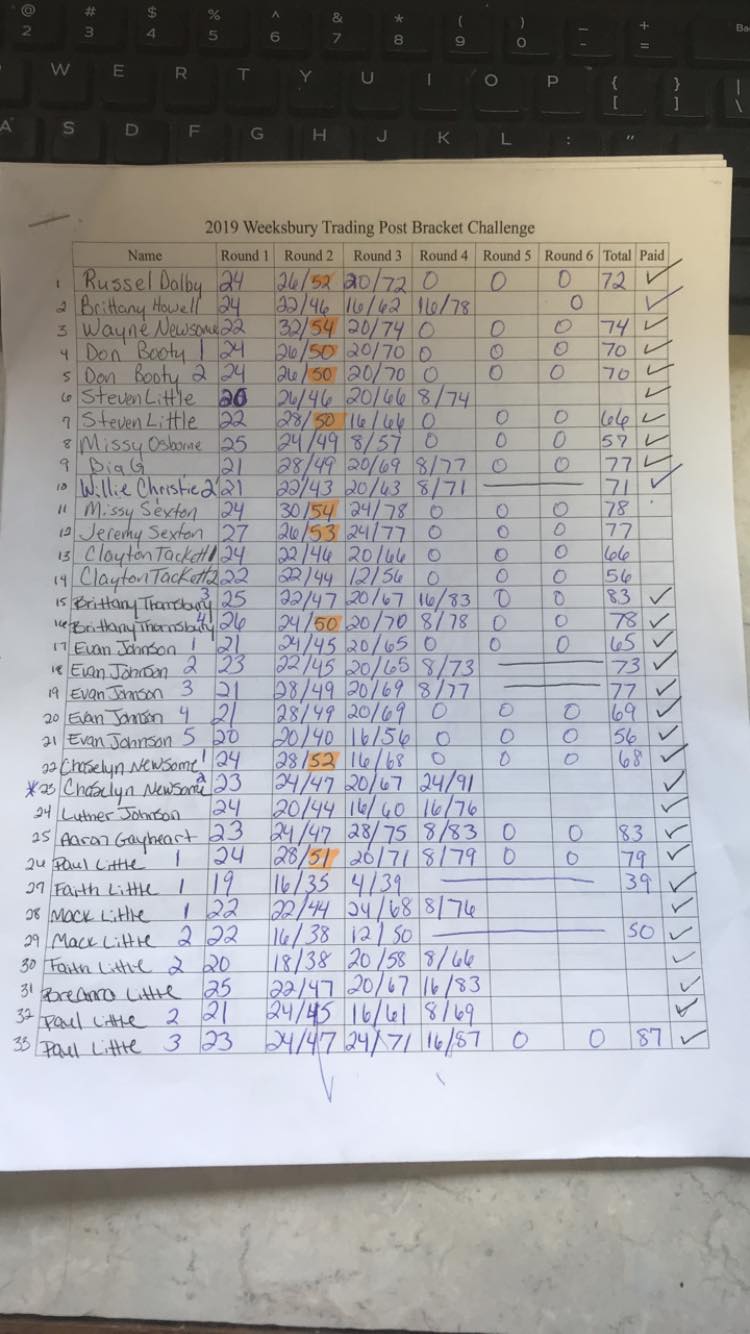 @ # $ % ^ & * ( ) _ +
2 3 4 5 6 7 8 9 0 - =
W E R T Y U I O P { [ } ] | \
A S D F G H J K L : "
2019 Weeksbury Trading Post Bracket Challenge
Name Round 1 Round 2 Round 3 Round 4 Round 5 Round 6 Total Paid
1 Russel Dalby 24 26/52 20/72 0 0 0 72 ✓
2 Brittany Howell 24 22/46 16/62 16/78 0 ✓
3 Wayne Newsome 22 32/54 20/74 0 0 0 74 ✓
4 Don Booty 1 24 26/50 20/70 0 0 0 70 ✓
5 Don Booty 2 24 26/50 20/70 0 0 0 70 ✓
6 Steven Little 20 26/46 20/66 8/74 ✓
7 Steven Little 22 28/50 16/66 0 0 0 66 ✓
8 Missy Osborne 25 24/49 8/57 0 0 0 57 ✓
9 Big G 21 28/49 20/69 8/77 0 0 77 ✓
10 Willie Christie 2 21 22/43 20/63 8/71 71 ✓
11 Missy Sexton 24 30/54 24/78 0 0 0 78
12 Jeremy Sexton 27 26/53 24/77 0 0 0 77
13 Clayton Tackett 1 24 22/46 20/66 0 0 0 66
14 Clayton Tackett 2 22 22/44 12/56 0 0 0 56
15 Brittany Thornsbury 3 25 22/47 20/67 16/83 0 0 83 ✓
16 Brittany Thornsbury 4 26 24/50 20/70 8/78 0 0 78 ✓
17 Evan Johnson 1 21 24/45 20/65 0 0 0 65 ✓
18 Evan Johnson 2 23 22/45 20/65 8/73 73 ✓
19 Evan Johnson 3 21 28/49 20/69 8/77 77 ✓
20 Evan Johnson 4 21 28/49 20/69 0 0 0 69 ✓
21 Evan Johnson 5 20 20/40 16/56 0 0 0 56 ✓
22 Chaselyn Newsome 1 24 28/52 16/68 0 0 0 68 ✓
*23 Chaselyn Newsome 2 23 24/47 20/67 24/91 ✓
24 Luther Johnson 24 20/44 16/60 16/76 ✓
25 Aaron Gayheart 23 24/47 28/75 8/83 0 0 83 ✓
26 Paul Little 1 24 28/51 20/71 8/79 0 0 79 ✓
27 Faith Little 1 19 16/35 4/39 39 ✓
28 Mack Little 1 22 22/44 24/68 8/76 ✓
29 Mack Little 2 22 16/38 12/50 50 ✓
30 Faith Little 2 20 18/38 20/58 8/66 ✓
31 Breanna Little 25 22/47 20/67 16/83 ✓
32 Paul Little 2 21 24/45 16/61 8/69 ✓
33 Paul Little 3 23 24/47 24/71 16/87 0 0 87 ✓